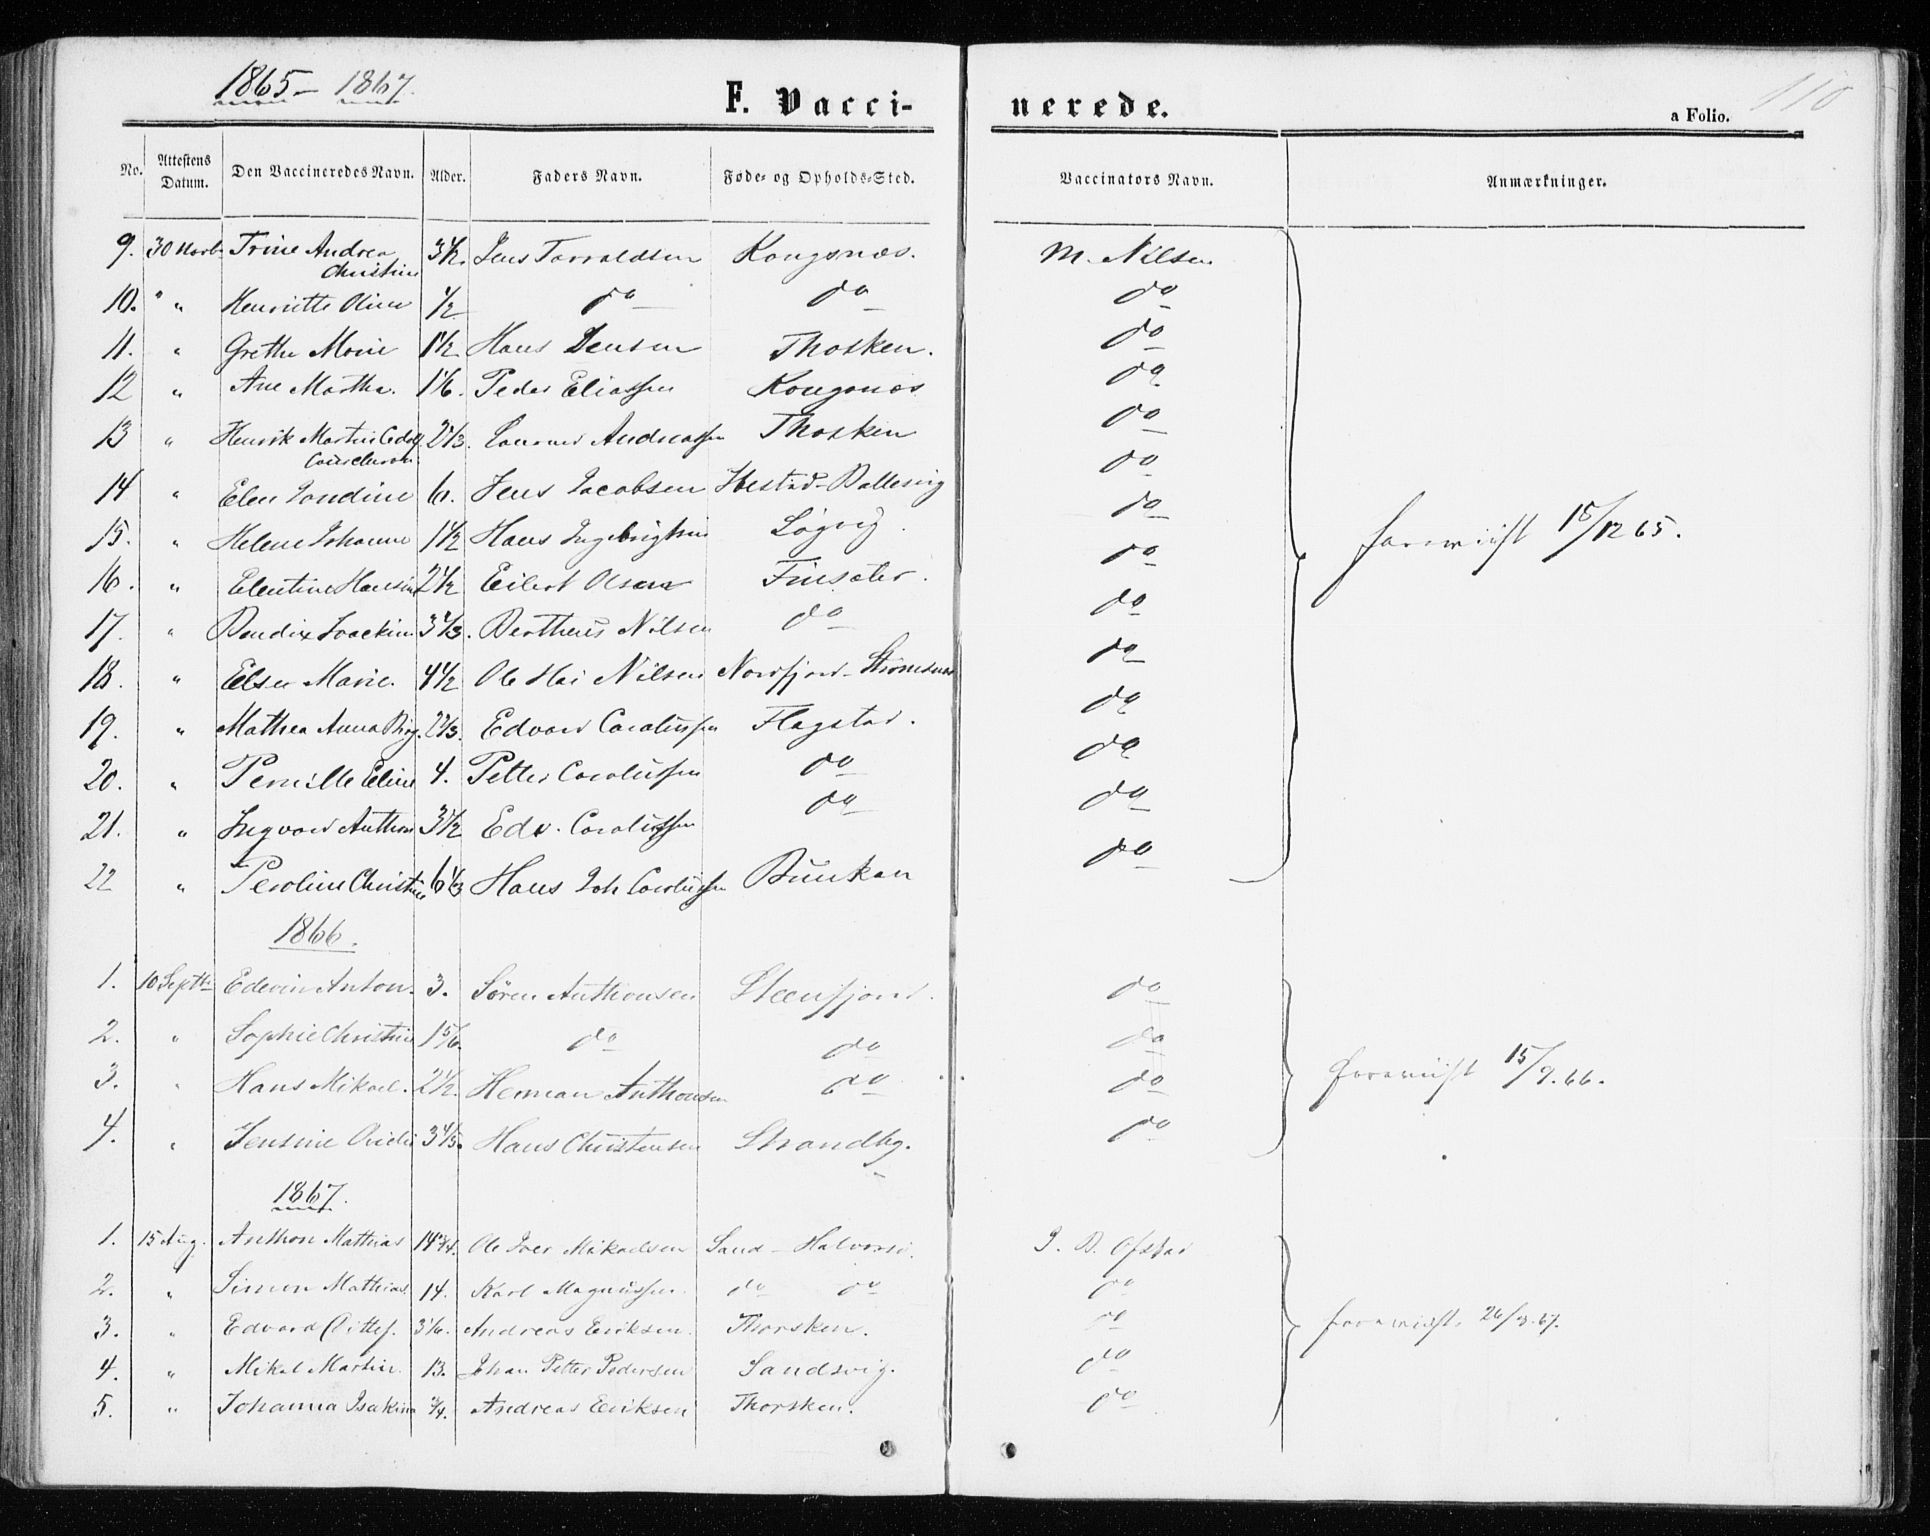 1865 – 1867.
F. Vaccinerede.
a Folio.
110
No. Attestens Datum. Den Vaccineredes Navn. Alder. Faders Navn. Føde- og Opholds-Sted. Vaccinators Navn. Anmærkninger.
9. 30 Novb. Trine Andrea Christine 3 1/2. Jens Torraldsen Kongsnæs. M. Nilsen
10. " " Henriette Oline 1/2 do do do
11. " Grethe Marie 1 1/2 Hans Jensen Thosken. do
12 " Ane Martha. 1 1/6. Peder Eliassen Kongsnæs do
13 " Henrik Martin 2 1/3. Andreassen Thosken do
14 " Elen 6. Jens Jacobsen Ibestad - Ballesvig do
15. " Helene Johanne 1 1/2 Hans Ingebrigtsen Løgvig. do forewiist 15/12 65.
16. " Elentine Hansine 2 1/2 Eilert Olsen Finsæter. do
17. " Bendix Joackim 3 1/3. Bertheus Nilsen do do
18. " Elsee Marie. 4 1/2 Ole Nilsen Nordfjord - Strømsnæs do
19. " Mathea Anna Birg. 2 2/3. Edvard Carolussen Flagstad. do
20. " Pernille Eline 4. Petter Carolussen do do
21. " Ingvard Anthon 3 1/2 Edv. Carolussen do do
22 " Peroline Christine 6 1/3 Hans Joh Carolussen Bunkan do
1866.
1. 10 Septbr Edevin Anton. 3. Søren Anthonsen Steenfjord. do
2. " Sophie Christine 1 5/6. do do do
3. " Hans Mikael. 2 1/2. Herman Anthonsen do do forewiist 15/9.66.
4. " Jensine 3 4/5. Hans Christensen Strandby. do
1867.
1. 15 Aug. Anthon Mathias 14 3/4. Ole Iver Mikaelsen Sand - J. B. Ofstad
2. " Simon Mathias. 14. Karl Magnussen. do do do
3. " Edvard Dittef. 3 1/6. Andreas Eriksen. Thorsken. do forewiist. 26/8.67.
4. " Mikal Martin. 13. Johan Petter Pedersen Sandsvig. do
5. " Johanna Isakina 3/4. Andreas Eriksen Thorsken. do